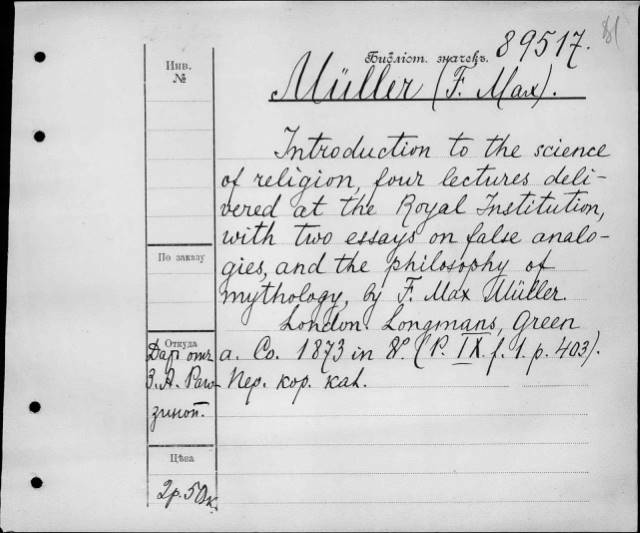 81
Библіот. значекъ. 89517.
Инв.
№
Müller (F. Max).
Introduction to the science
of religion, four lectures deli-
vered at the Royal Institution,
with two essays on false analo-
gies, and the philosophy of
mythology, by F. Max Müller.
London. Longmans, Green
a. Co. 1873 in 8º. (P. IX. f. 1. p. 403).
Пер. кор. каl.
По заказу
Откуда
Даръ отъ
З. А. Раго-
зиной.
Цѣна
2р. 50к.